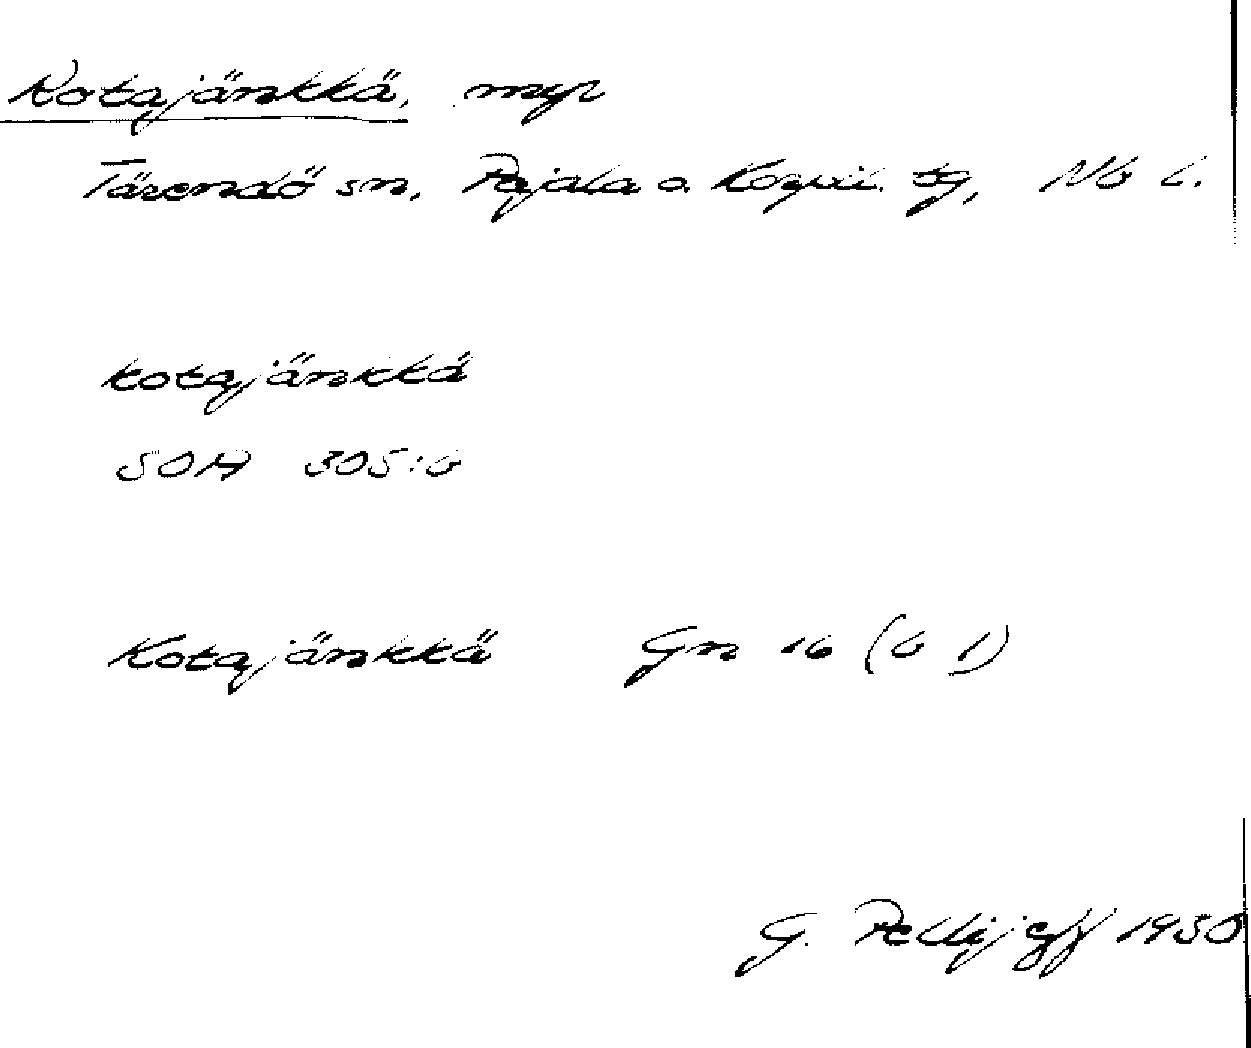 Kotajänkkä, myr
Tärendö sn, Pajala o. Korpil. tg, Nb l.
kotajänkkä
SOA 305:6
Kotajänkkä Gn 16 (61)
G. Pellijeff 1950